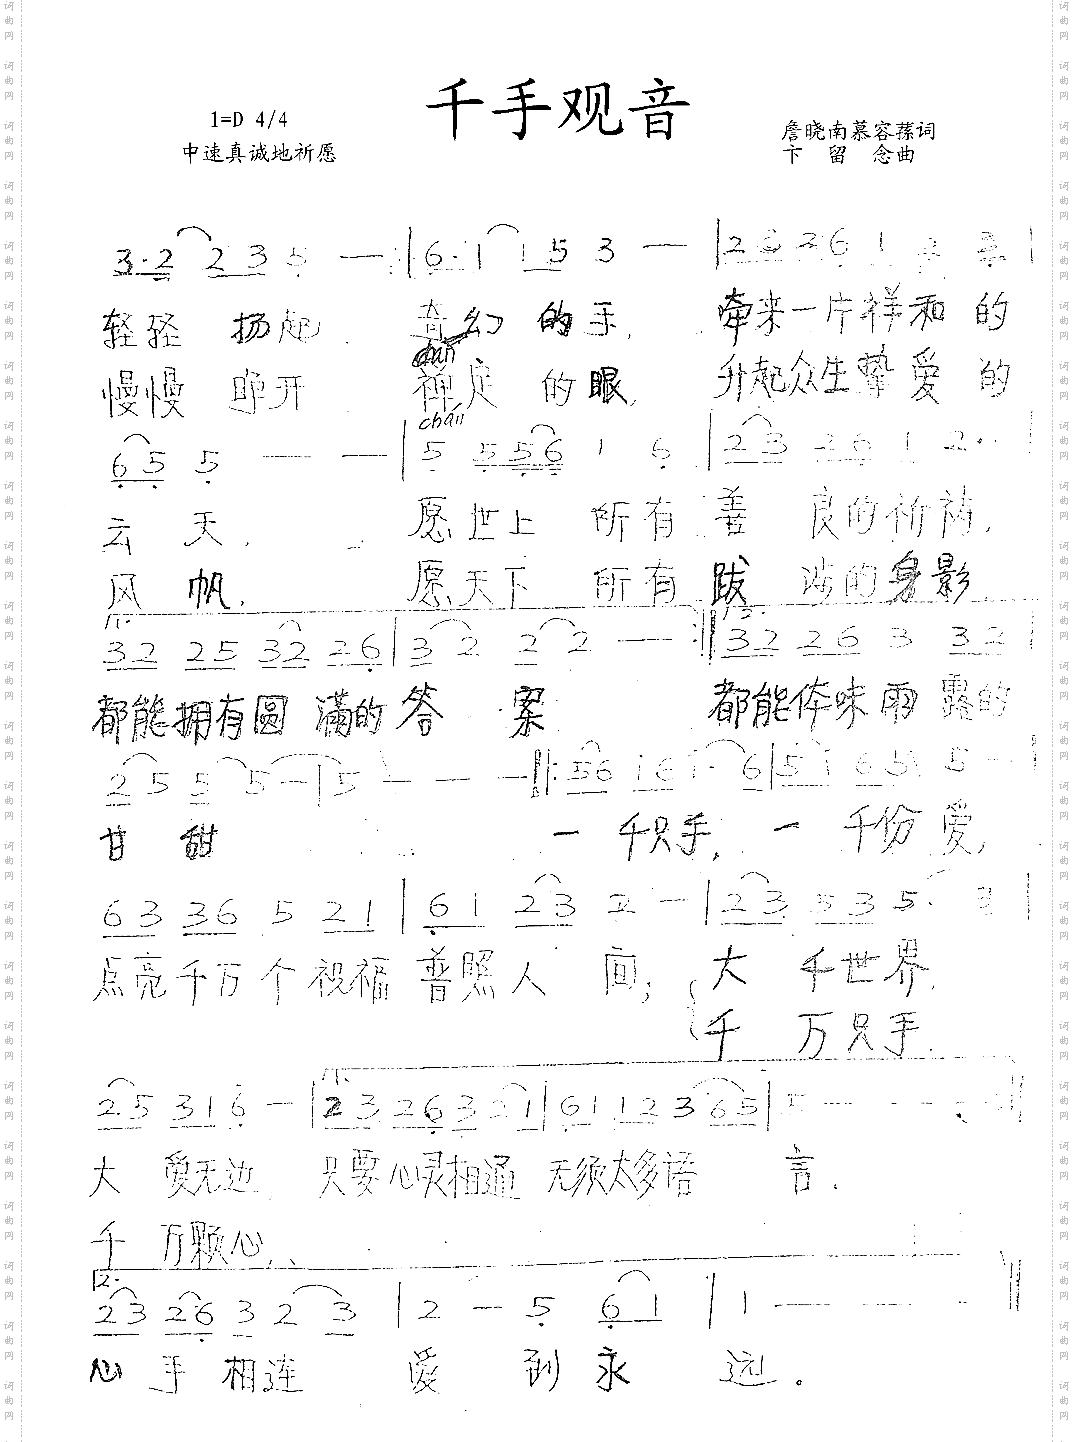 千手观音
1=D 4/4
中速真诚地祈愿
詹晓南慕容蓀词
卞 留 念曲
3·2 2 3 5 — | 6·1 1 5 3 — | 2 2 2 6 1 2 3 |
轻轻 扬起 奇幻 的手, 牵来一片祥和 的
慢慢 睁开 禅定 的眼, 升起众生挚爱 的
chán
6 5 5 — — | 5 5 5 6 1 6 | 2 3 2 6 1 2 · · |
云 天, 愿世上 所有 善 良的祈祷,
风 帆, 愿天下 所有 跋 涉的身影
1.
2.
3 2 2 5 3 2 2 6 | 3 2 2 2 — :‖ 3 2 2 6 3 3 2
都能拥有圆 满的 答 案 都能体味雨 露的
2 5 5 5 — | 5 — — — ‖: 5 6 1 6 1 · 6 | 5 1 6 5 5 —
甘 甜 一 千只手, 一 千份 爱,
6 3 3 6 5 2 1 | 6 1 2 3 2 — | 2 3 3 3 5 · 3 |
点亮千万个 祝福 普照人 间; 大 千世界,
千 万只手,
1.
2 5 3 1 6 — | 2 3 2 6 3 2 1 | 6 1 1 2 3 6 5 | 5 — — —
大 爱无边 只要心灵相通 无须太多语 言.
千 万颗心,
2.
2 3 2 6 3 2 3 | 2 — 5 6 1 | 1 — — — ‖
心 手 相连 爱 到 永 远。
词曲网